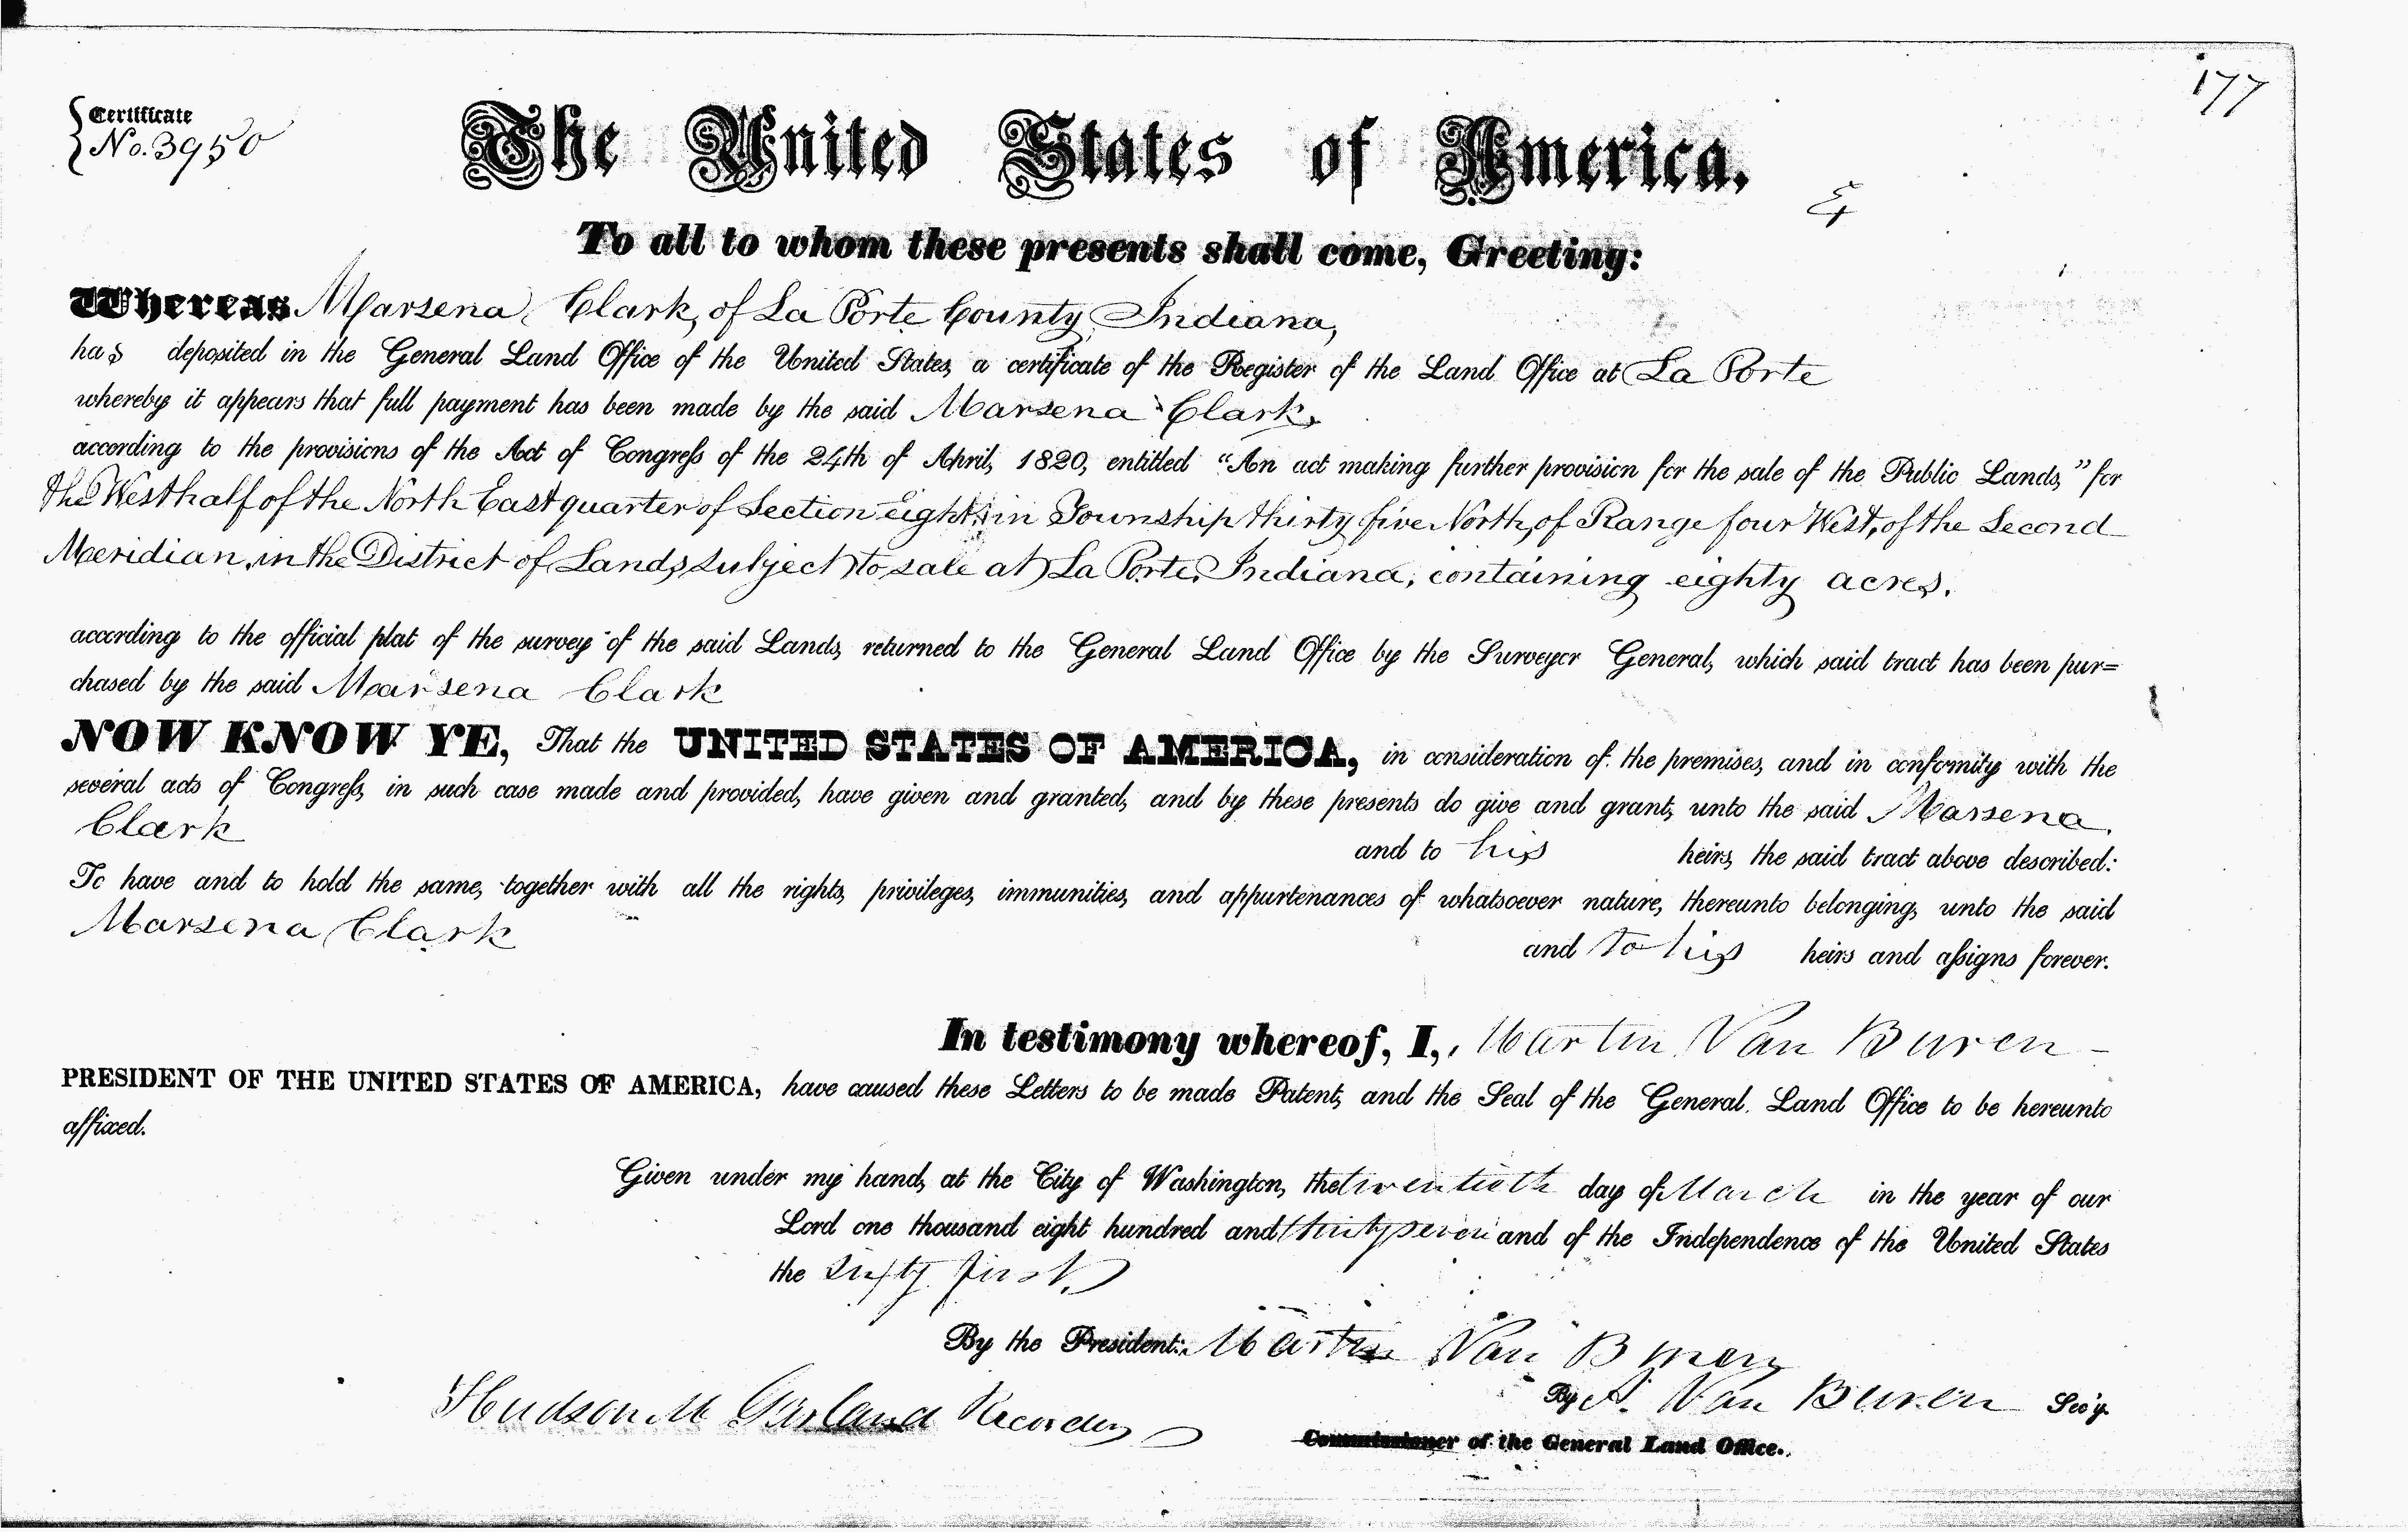 177
Certificate
No. 3950
The United States of America.
To all to whom these presents shall come, Greeting:
Whereas Marsena Clark, of La Porte County Indiana,
has deposited in the General Land Office of the United States, a certificate of the Register of the Land Office at La Porte
whereby it appears that full payment has been made by the said Marsena Clark,
according to the provisions of the Act of Congreſs of the 24th of April, 1820, entitled “An act making further provision for the sale of the Public Lands,” for
the West half of the North East quarter of Section eight, in Township thirty five North, of Range four West, of the Second
Meridian, in the District of Lands subject to sale at La Porte, Indiana, containing eighty acres.
according to the official plat of the survey of the said Lands, returned to the General Land Office by the Surveyor General, which said tract has been pur=
chased by the said Marsena Clark
NOW KNOW YE, That the UNITED STATES OF AMERICA, in consideration of the premises, and in conformity with the
several acts of Congreſs, in such case made and provided, have given and granted, and by these presents do give and grant, unto the said Marsena
Clark
and to his heirs, the said tract above described:
To have and to hold the same, together with all the rights, privileges, immunities, and appurtenances of whatsoever nature, thereunto belonging, unto the said
Marsena Clark
and to his heirs and aſsigns forever.
In testimony whereof, I, Martin Van Buren
PRESIDENT OF THE UNITED STATES OF AMERICA, have caused these Letters to be made Patent, and the Seal of the General Land Office to be hereunto
affixed.
Given under my hand, at the City of Washington, the twentieth day of March in the year of our
Lord one thousand eight hundred and thirty seven and of the Independence of the United States
the sixty first.
By the President: Martin Van Buren
By A. Van Buren Sec'y.
Hudson M Garland Recorder
Commissioner of the General Land Office.